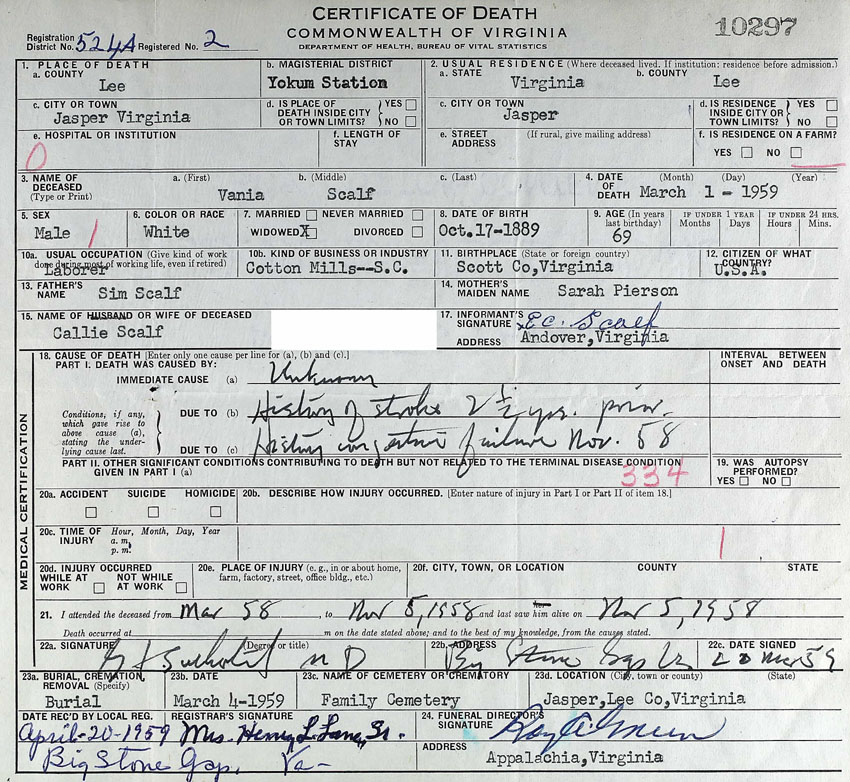 CERTIFICATE OF DEATH
COMMONWEALTH OF VIRGINIA
DEPARTMENT OF HEALTH, BUREAU OF VITAL STATISTICS
10297
Registration District No. 524A Registered No. 2
1. PLACE OF DEATH
a. COUNTY
Lee
b. MAGISTERIAL DISTRICT
Yokum Station
2. USUAL RESIDENCE (Where deceased lived. If institution: residence before admission.)
a. STATE
Virginia
b. COUNTY
Lee
c. CITY OR TOWN
Jasper Virginia
d. IS PLACE OF DEATH INSIDE CITY OR TOWN LIMITS? YES NO
c. CITY OR TOWN
Jasper
d. IS RESIDENCE INSIDE CITY OR TOWN LIMITS? YES NO
e. HOSPITAL OR INSTITUTION
0
f. LENGTH OF STAY
e. STREET ADDRESS (If rural, give mailing address)
f. IS RESIDENCE ON A FARM?
YES NO
3. NAME OF DECEASED
(Type or Print)
a. (First) b. (Middle) c. (Last)
Vania Scalf
4. DATE OF DEATH (Month) (Day) (Year)
March 1 - 1959
5. SEX
Male
6. COLOR OR RACE
White
7. MARRIED NEVER MARRIED
WIDOWED X DIVORCED
8. DATE OF BIRTH
Oct.17-1889
9. AGE (In years last birthday)
69
IF UNDER 1 YEAR
Months Days
IF UNDER 24 HRS.
Hours Mins.
10a. USUAL OCCUPATION (Give kind of work done during most of working life, even if retired)
Laborer
10b. KIND OF BUSINESS OR INDUSTRY
Cotton Mills--S.C.
11. BIRTHPLACE (State or foreign country)
Scott Co,Virginia
12. CITIZEN OF WHAT COUNTRY?
U.S.A.
13. FATHER'S NAME Sim Scalf
14. MOTHER'S MAIDEN NAME Sarah Pierson
15. NAME OF HUSBAND OR WIFE OF DECEASED
Callie Scalf
17. INFORMANT'S SIGNATURE E C. Scalf
ADDRESS Andover,Virginia
MEDICAL CERTIFICATION
18. CAUSE OF DEATH [Enter only one cause per line for (a), (b) and (c).]
PART I. DEATH WAS CAUSED BY:
IMMEDIATE CAUSE (a) Unknown
INTERVAL BETWEEN ONSET AND DEATH
Conditions, if any, which gave rise to above cause (a), stating the underlying cause last.
DUE TO (b) History of stroke 2 1/2 yrs. prior.
DUE TO (c) History congestive failure Nov. 58
PART II. OTHER SIGNIFICANT CONDITIONS CONTRIBUTING TO DEATH BUT NOT RELATED TO THE TERMINAL DISEASE CONDITION GIVEN IN PART I (a)
334
19. WAS AUTOPSY PERFORMED?
YES NO
20a. ACCIDENT SUICIDE HOMICIDE
20b. DESCRIBE HOW INJURY OCCURRED. [Enter nature of injury in Part I or Part II of item 18.]
20c. TIME OF INJURY Hour, Month, Day, Year
a. m.
p. m.
20d. INJURY OCCURRED
WHILE AT WORK NOT WHILE AT WORK
20e. PLACE OF INJURY (e.g., in or about home, farm, factory, street, office bldg., etc.)
20f. CITY, TOWN, OR LOCATION COUNTY STATE
21. I attended the deceased from Mar 58, to Nov 5, 1958 and last saw him alive on Nov 5, 1958
Death occurred at m on the date stated above; and to the best of my knowledge, from the causes stated.
22a. SIGNATURE (Degree or title)
M D
22b. ADDRESS
Big Stone Gap Va
22c. DATE SIGNED
20 Mar 59
23a. BURIAL, CREMATION, REMOVAL (Specify)
Burial
23b. DATE
March 4-1959
23c. NAME OF CEMETERY OR CREMATORY
Family Cemetery
23d. LOCATION (City, town or county) (State)
Jasper,Lee Co,Virginia
DATE REC'D BY LOCAL REG.
April-20-1959
REGISTRAR'S SIGNATURE
Mrs. Henry L. Lane, Sr.
Big Stone Gap, Va-
24. FUNERAL DIRECTOR'S SIGNATURE
Roy A. Green
ADDRESS
Appalachia,Virginia